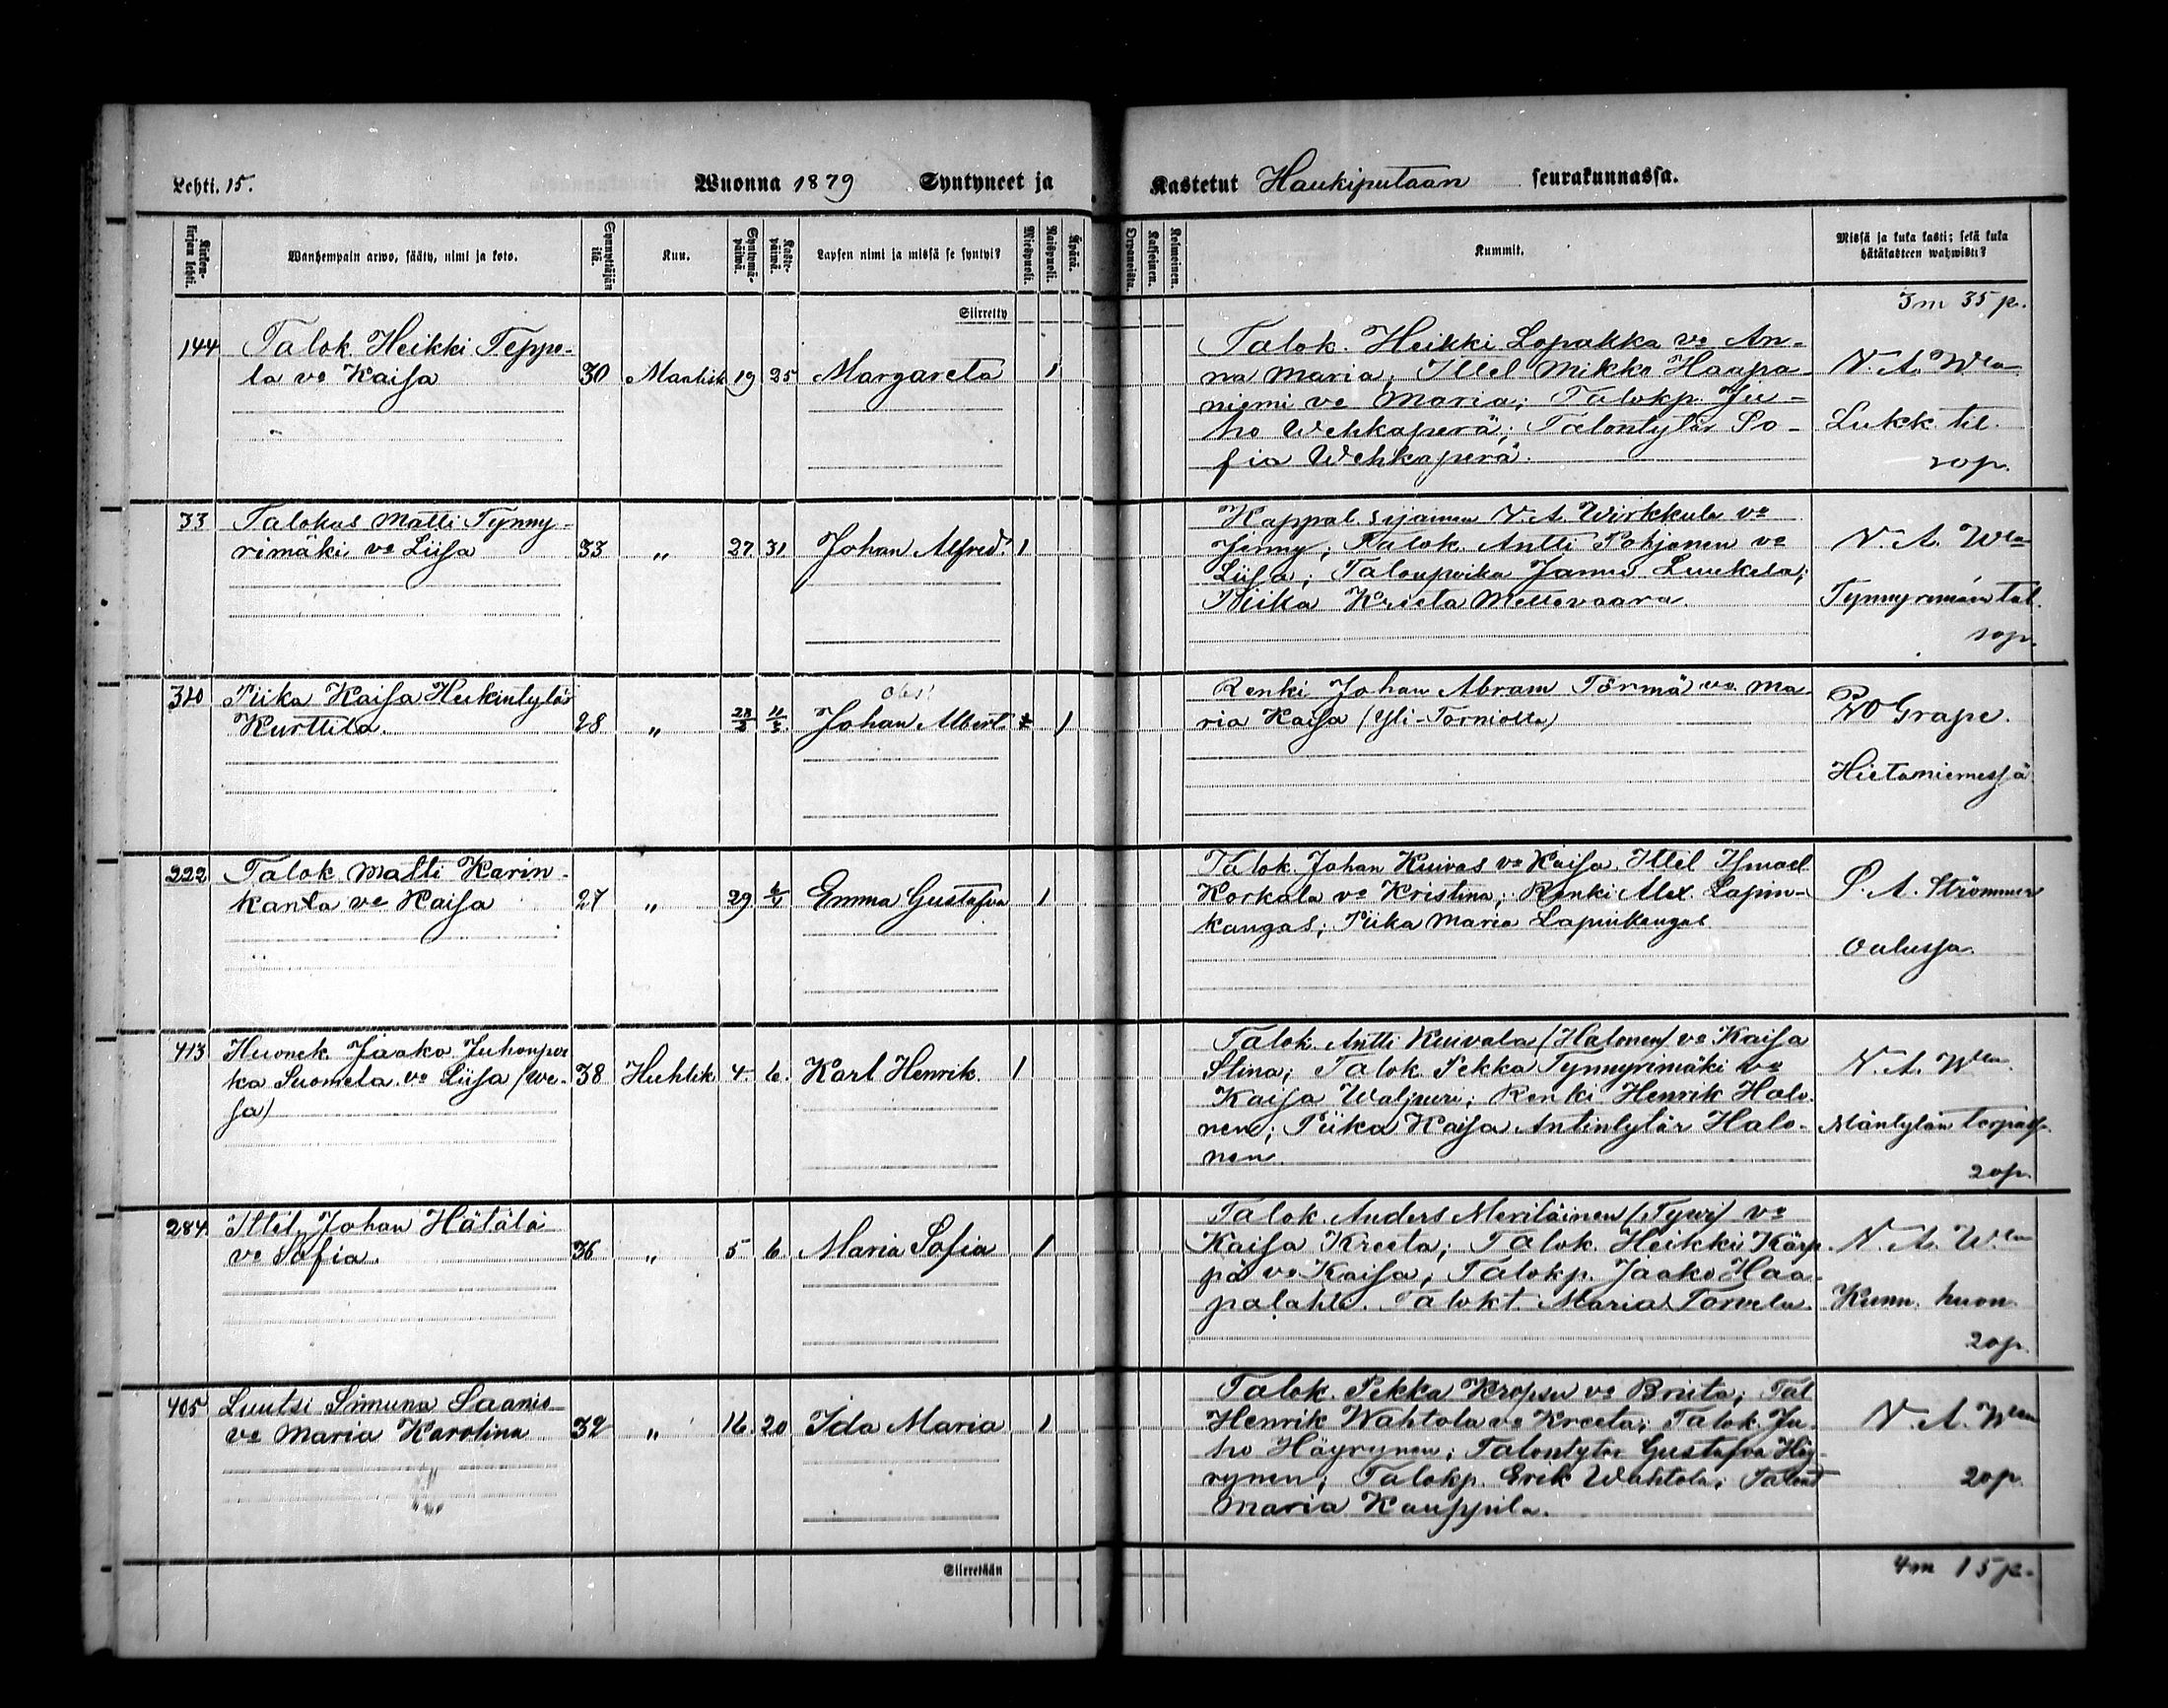 Lehti. 15. Wuonna 1879 Syntyneet ja Kastetut Haukiputaan seurakunnassa.
Kirkonkirjan lehti. Wanhempain arwo, sääty, nimi ja koto. Synnyttäjän ikä. Kuu. Syntymäpäiwä. Kastepäiwä. Lapsen nimi ja missä se syntyi? Miespuoli. Naispuoli. Äpärä. Orpanoista. Kaksoinen. Kolmoinen. Kummit. Missä ja kuka kasti; sekä kuka hätäkasteen wahwisti?
Siirretty 3m 35p.
144 Talok. Heikki Teppo-
la vo Kaisa 30 Maalisk 19 25 Margareta 1
Talok. Heikki Lopakka vo An-
na Maria; Ittel Mikko Haapa-
niemi vo Maria; Talokp. Ju-
ho Wehkaperä; Talontytär So-
fia Wehkaperä.
N. A. Wla
Lukk. til.
20p.
33 Talokas Matti Tynny-
rimäki vo Liisa 33 " 27 31 Johan Alfred. 1
Kappal. sijainen N. A. Wirkkula vo
Jenny; Talok. Antti Pohjonen vo
Liisa; Talonpoika Janne Luukela;
Piika Kreeta Mettovaara.
N. A. Wla
Tynnyrimäen tal.
20p.
320 Piika Kaisa Heikintytär
Kurttila. 28 " Johan Albert 1
Renki Johan Abram Törmä vo Ma
ria Kaisa (Yli-Torniolla)
Grape.
Hietaniemessä
222 Talok Matti Karin-
kanta vo Kaisa 27 " 29 Emma Gustafva 1
Talok. Johan Kuivas vo Kaisa. Ittel Ismael
Korkala vo Kristina; Renki Alex. Lapin-
kangas; Piika Maria Lapinkangas
A. Strömmer
Oulussa.
413 Huonek. Jaako Juhonpoi
ka Suomela vo Liisa (we-
sa) 38 Huhtik 4. 6. Karl Henrik 1
Talok. Antti Kuivala (Halonen) vo Kaisa
Stina; Talok Pekka Tynnyrimäki vo
Kaisa; Renki Henrik Halo-
nen; Piika Kaisa Antintytär Halo-
nen.
N. A. Wla
Mäntylän torpassa.
20p.
284 Ittel. Johan Hätälä
vo Sofia. 36 " 5 6. Maria Sofia 1
Talok. Anders Meriläinen (Tywi) vo
Kaisa Kreeta; Talok. Heikki Kärp-
pä vo Kaisa; Talokp. Jaako Haa-
palahti. Talokt. Maria
N. A. Wla
Kunn. huon.
20p.
405 Luutsi Simuna Saanio
vo Maria Karolina 32 " 16. 20 Ida Maria 1
Talok. Pekka Kropsu vo Briita; Tal
Henrik Wahtola vo Kreeta; Talok. Ju-
ho Höyrynen; Talontytär Gustafva Höy-
rynen; Talokp. Erik Wahtola;
Maria Kauppila.
N. A. Wla
20p.
Siirretään 4m 15p.